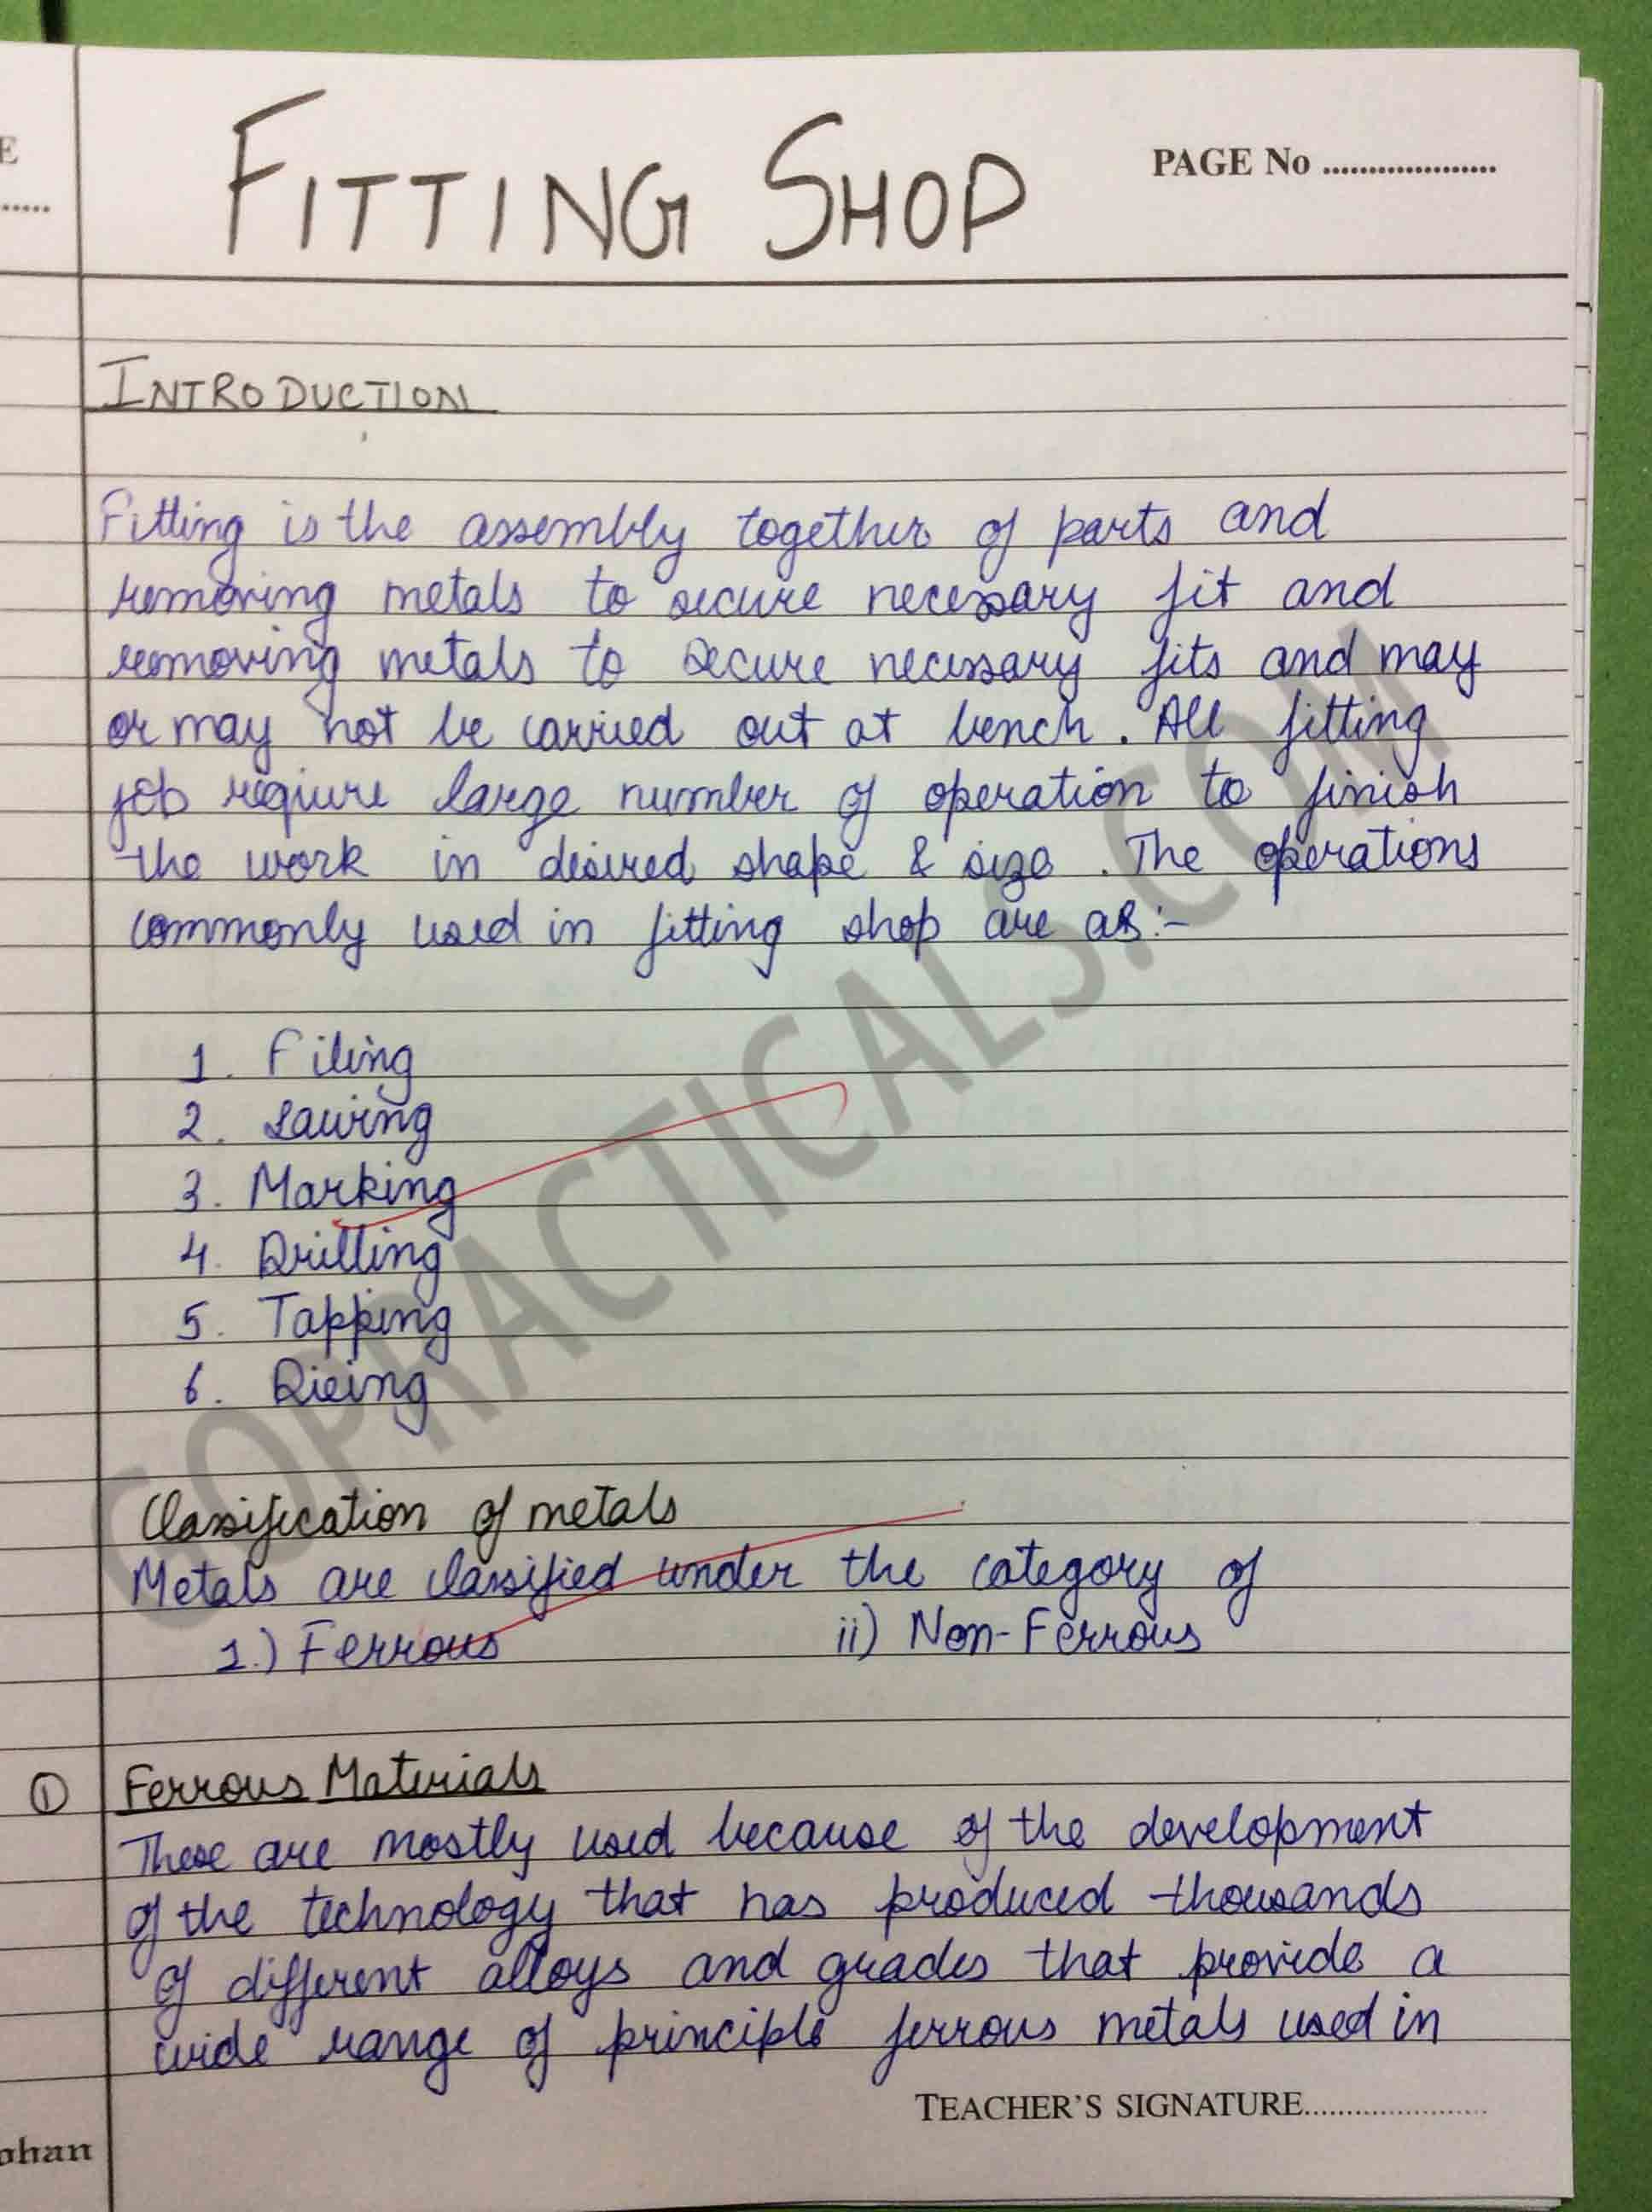 E
.....
FITTING SHOP
PAGE No ....................
INTRODUCTION
Fitting is the assembly together of parts and
removing metals to secure necessary fit and
removing metals to secure necessary fits and may
or may not be carried out at bench. All fitting
job require large number of operation to finish
the work in desired shape & size. The operations
commonly used in fitting shop are as:-
1. Filing
2. Sawing
3. Marking
4. Drilling
5. Tapping
6. Dieing
Classification of metals
Metals are classified under the category of
1.) Ferrous ii) Non-Ferrous
① Ferrous Materials
These are mostly used because of the development
of the technology that has produced thousands
of different alloys and grades that provide a
wide range of principle ferrous metals used in
TEACHER'S SIGNATURE......................
ohan
GOPRACTICALS.COM